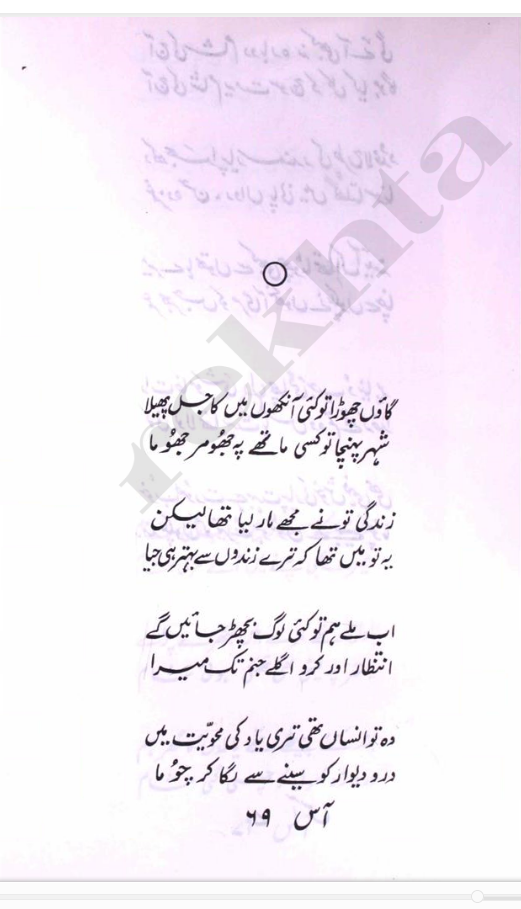 گاؤں چھوڑا تو کئی آنکھوں میں کاجل پھیلا
شہر پہنچا تو کسی ماتھے پہ جھُومر جھُوما
زندگی تو نے مجھے مار لیا تھا لیکن
یہ تو میں تھا کہ ترے زندوں سے بہتر ہی جیا
اب ملے ہم تو کئی لوگ بچھڑ جائیں گے
انتظار اور کرو اگلے جنم تک میرا
وہ تو انساں تھی تری یاد کی محویّت میں
در و دیوار کو سینے سے لگا کر چُوما
آس ۶۹
rekhta